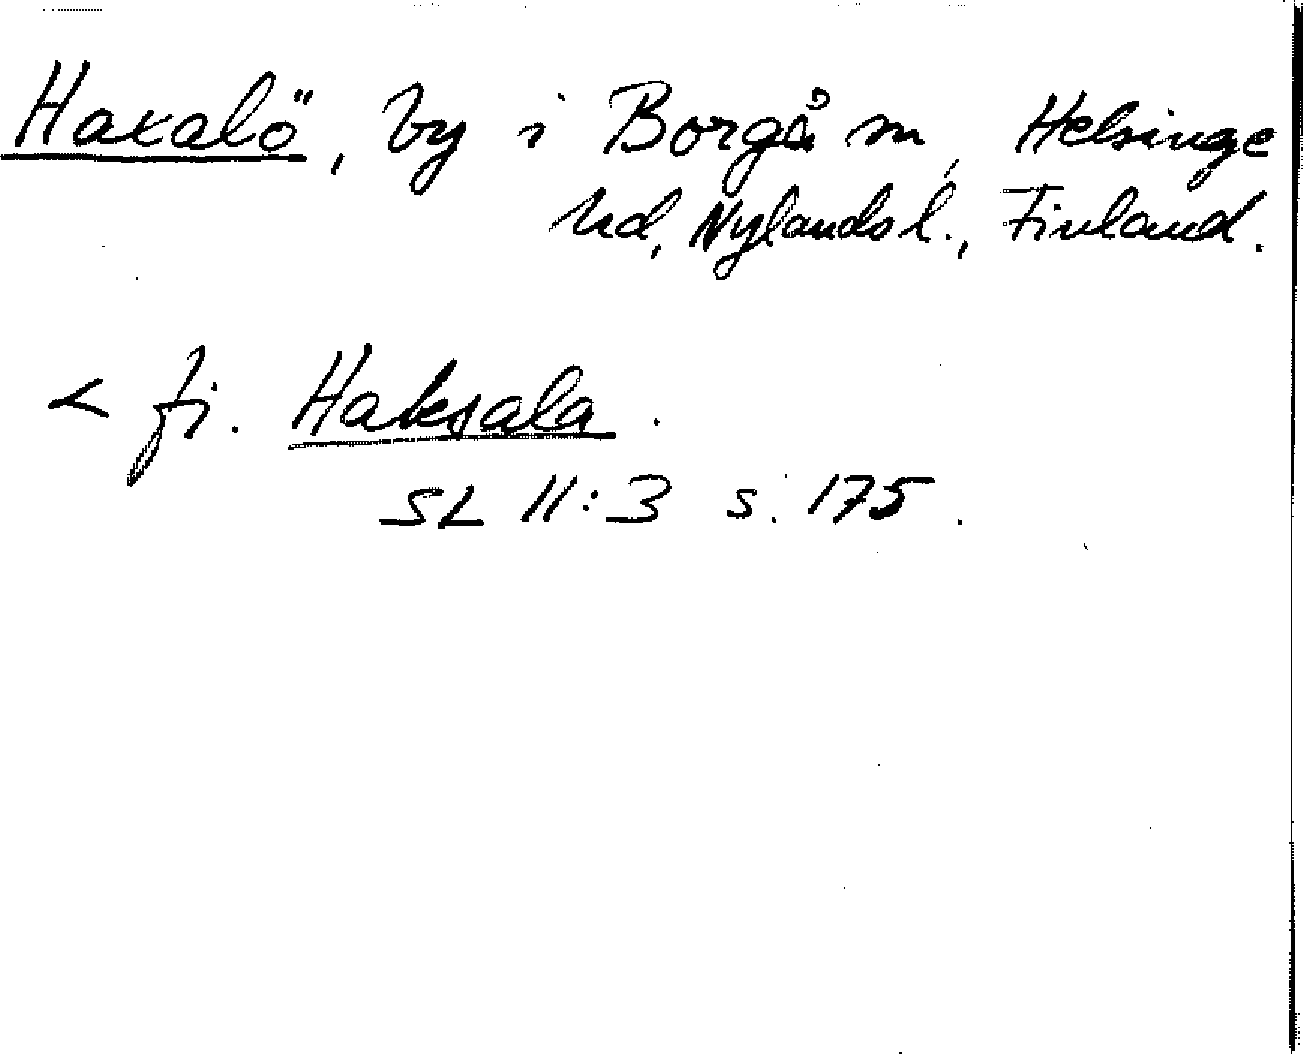 Haxalö, by i Borgå sn, Helsinge
hd, Nylands l., Finland.
< fi. Haksala.
SL 11:3 s. 175.